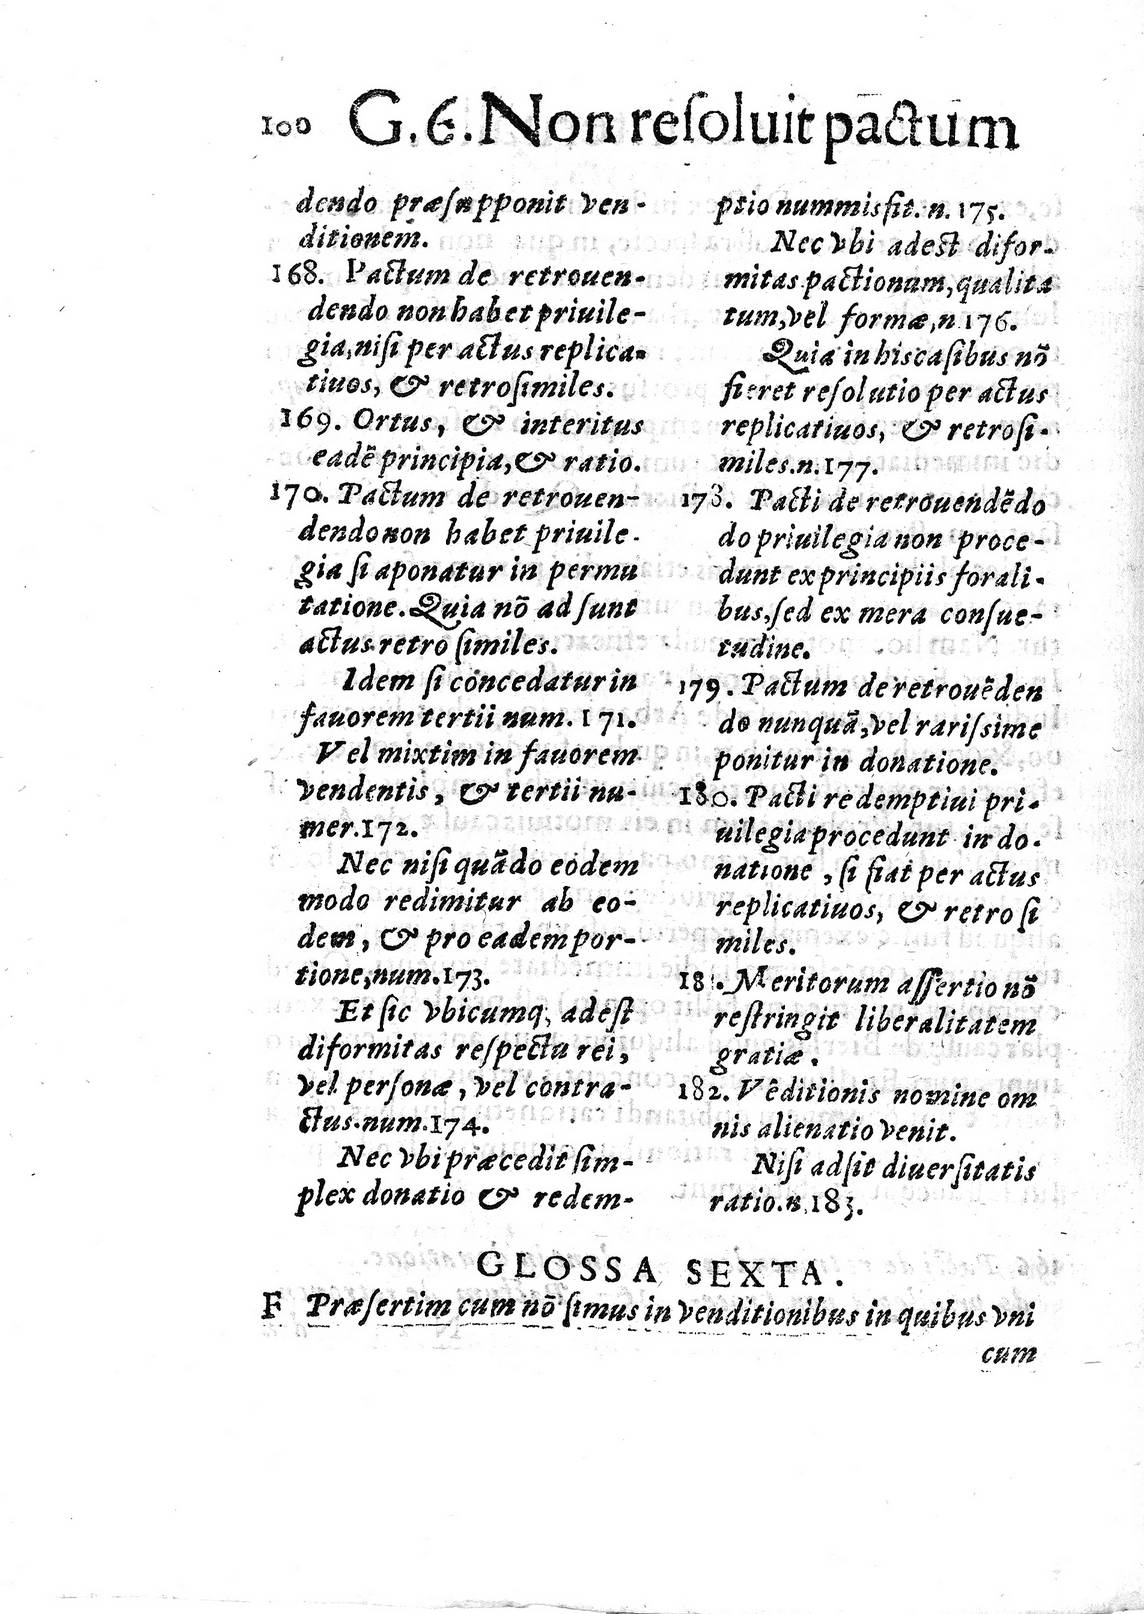 100 G. 6. Non reſoluit pactum
dendo præſupponit ven-
ditionem.
168. Pactum de retrouen-
dendo non habet priuile-
gia, niſi per actus replica-
tiuos, & retroſimiles.
169. Ortus, & interitus
eadē principia, & ratio.
170. Pactum de retrouen-
dendo non habet priuile-
gia ſi aponatur in permu
tatione. Quia nō adſunt
actus retro ſimiles.
Idem ſi concedatur in
fauorem tertii num. 171.
Vel mixtim in fauorem
vendentis, & tertii nu-
mer. 172.
Nec niſi quādo eodem
modo redimitur ab eo-
dem, & pro eadem por-
tione, num. 173.
Et ſic vbicumq; adeſt
diformitas reſpectu rei,
vel perſonæ, vel contra-
ctus. num. 174.
Nec vbi præcedit ſim-
plex donatio & redem-
ptio nummis fit. n. 175.
Nec vbi adeſt difor-
mitas pactionum, qualita
tum, vel formæ, n 176.
Quia in his caſibus nō
fieret reſolutio per actus
replicatiuos, & retroſi-
miles. n. 177.
178. Pacti de retrouendēdo
do priuilegia non proce-
dunt ex principiis forali-
bus, ſed ex mera conſue-
tudine.
179. Pactum de retrouēden
do nunquā, vel rariſsime
ponitur in donatione.
180. Pacti redemptiui pri-
uilegia procedunt in do-
natione, ſi fiat per actus
replicatiuos, & retro ſi
miles.
181. Meritorum aſſertio nō
reſtringit liberalitatem
gratiæ.
182. Vēditionis nomine om
nis alienatio venit.
Niſi adſit diuerſitatis
ratio. n. 183.
GLOSSA SEXTA.
F Præſertim cum nō ſimus in venditionibus in quibus vni
cum